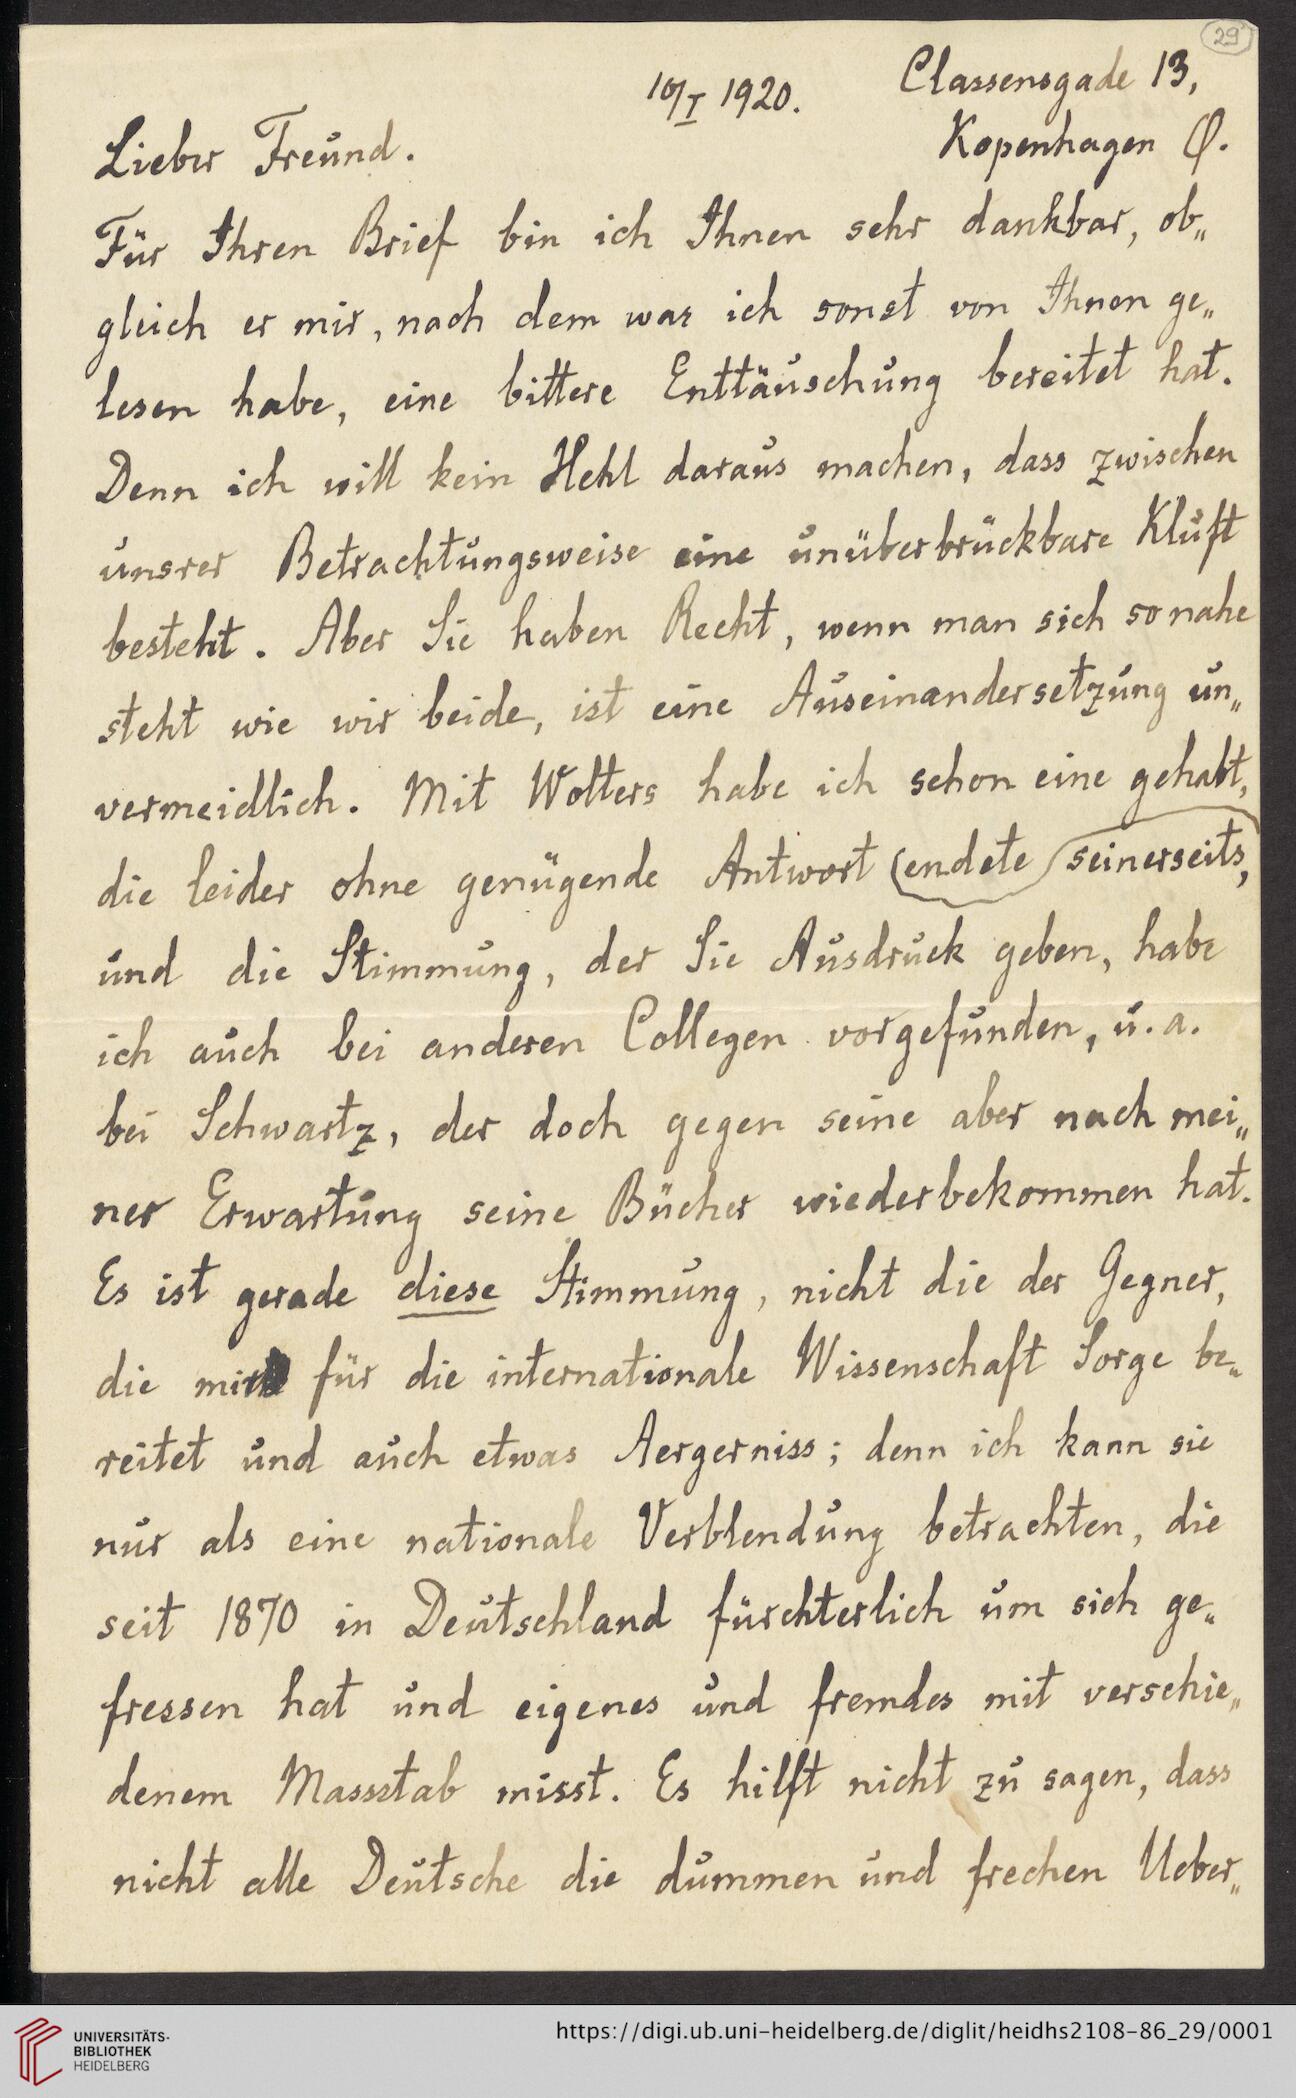 29
10/I 1920.
Classensgade 13,
Kopenhagen Ø.
Lieber Freund.
Für Ihren Brief bin ich Ihnen sehr dankbar, ob„
gleich er mir, nach dem was ich sonst von Ihnen ge„
lesen habe, eine bittere Enttäuschung bereitet hat.
Denn ich will kein Hehl daraus machen, dass zwischen
unsrer Betrachtungsweise eine unüberbrückbare Kluft
besteht. Aber Sie haben Recht, wenn man sich so nahe
steht wie wir beide, ist eine Auseinandersetzung un„
vermeidlich. Mit Wolters habe ich schon eine gehabt,
die leider ohne genügende Antwort endete seinerseits,
und die Stimmung, der Sie Ausdruck geben, habe
ich auch bei anderen Collegen vorgefunden, u. a.
bei Schwartz, der doch gegen seine aber nach mei„
ner Erwartung seine Bücher wiederbekommen hat.
Es ist gerade diese Stimmung, nicht die der Gegner,
die mir für die internationale Wissenschaft Sorge be„
reitet und auch etwas Aergerniss; denn ich kann sie
nur als eine nationale Verblendung betrachten, die
seit 1870 in Deutschland fürchterlich um sich ge„
fressen hat und eigenes und fremdes mit verschie„
denem Massstab misst. Es hilft nicht zu sagen, dass
nicht alle Deutsche die dummen und frechen Ueber„
UNIVERSITÄTS-
BIBLIOTHEK
HEIDELBERG
https://digi.ub.uni-heidelberg.de/diglit/heidhs2108-86_29/0001